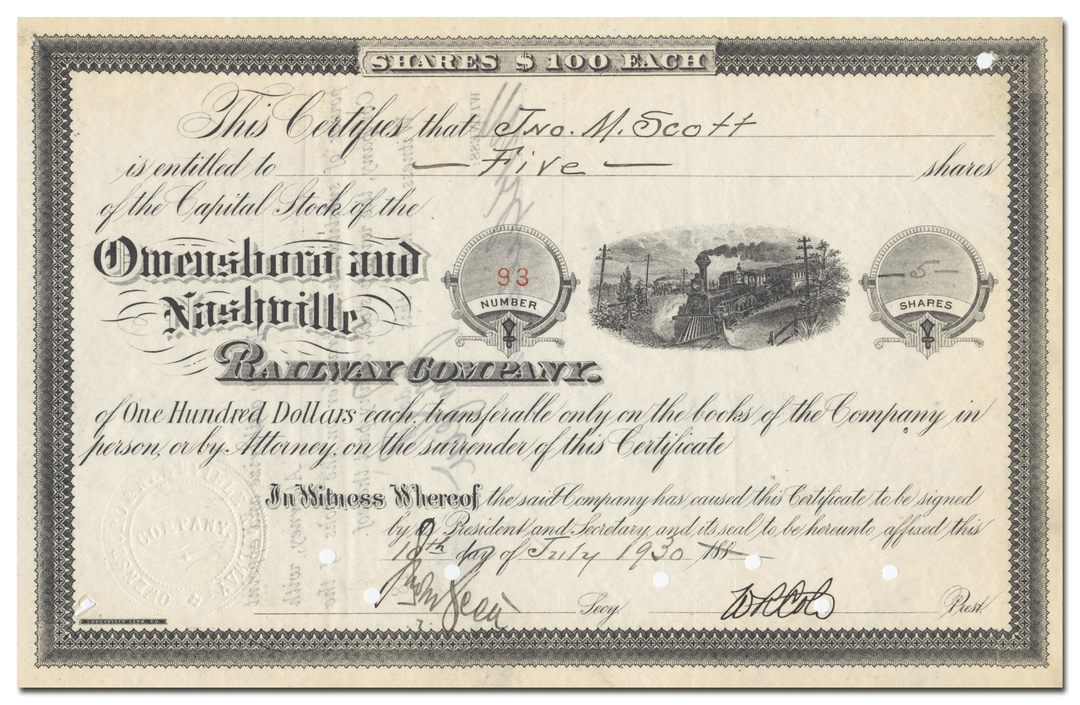 SHARES $100 EACH
This Certifies that Jno. M. Scott
is entitled to — Five — shares
of the Capital Stock of the
Owensboro and
Nashville
RAILWAY COMPANY.
93
NUMBER
— 5 —
SHARES
of ONE HUNDRED DOLLARS each, transferable only on the books of the Company in
person, or by Attorney, on the surrender of this Certificate
In Witness Whereof the said Company has caused this Certificate to be signed
by its President and Secretary, and its seal to be hereunto affixed this
10th day of July 1930
Secy. Prest.
COMPANY
LOUISVILLE LITH. CO.